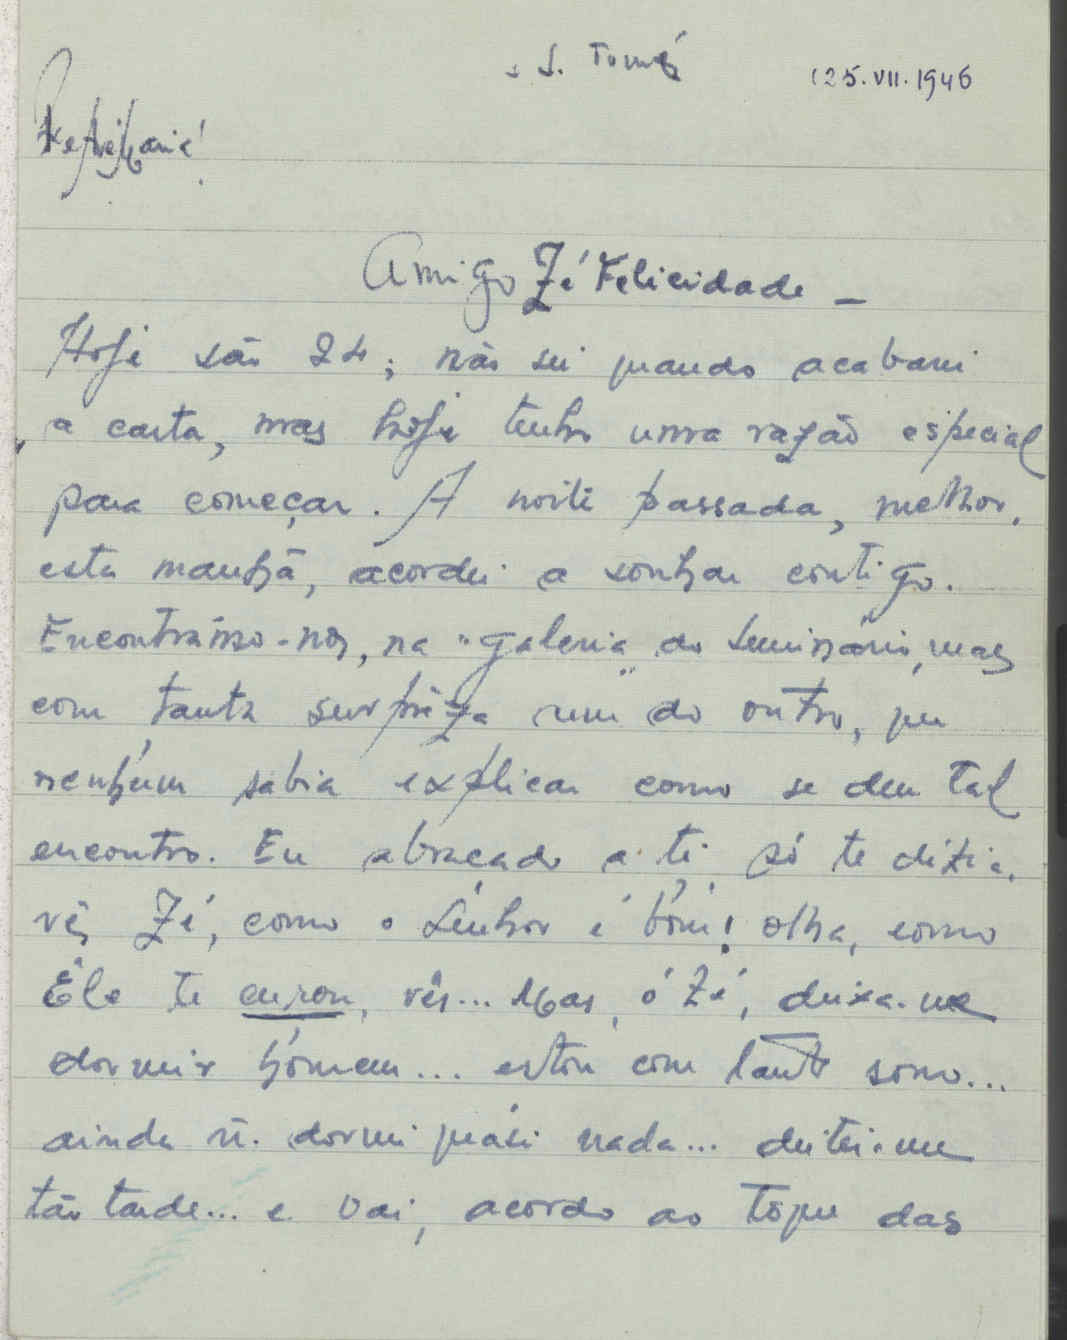 S. Tomé
25.VII.1946
Amigo Zé Felicidade –
Hoje são 24; não sei quando acabarei
a carta, mas hoje tenho uma razão especial
para começar. A noite passada, melhor,
esta manhã, acordei a sonhar contigo.
Encontrámo-nos, na "galeria" do Seminário, mas
com tanta surprêza um do outro, que
nenhum sabia explicar como se deu tal
encontro. Eu abraçado a ti só te dizia,
vês Zé, como o Senhor é bom! olha, como
Êle te curou, vês... Mas, ó Zé, deixa-me
dormir hómem... estou com tanto sono...
ainda ñ. dormi quási nada... deitei-me
tão tarde... e vai, acordo ao tóque das